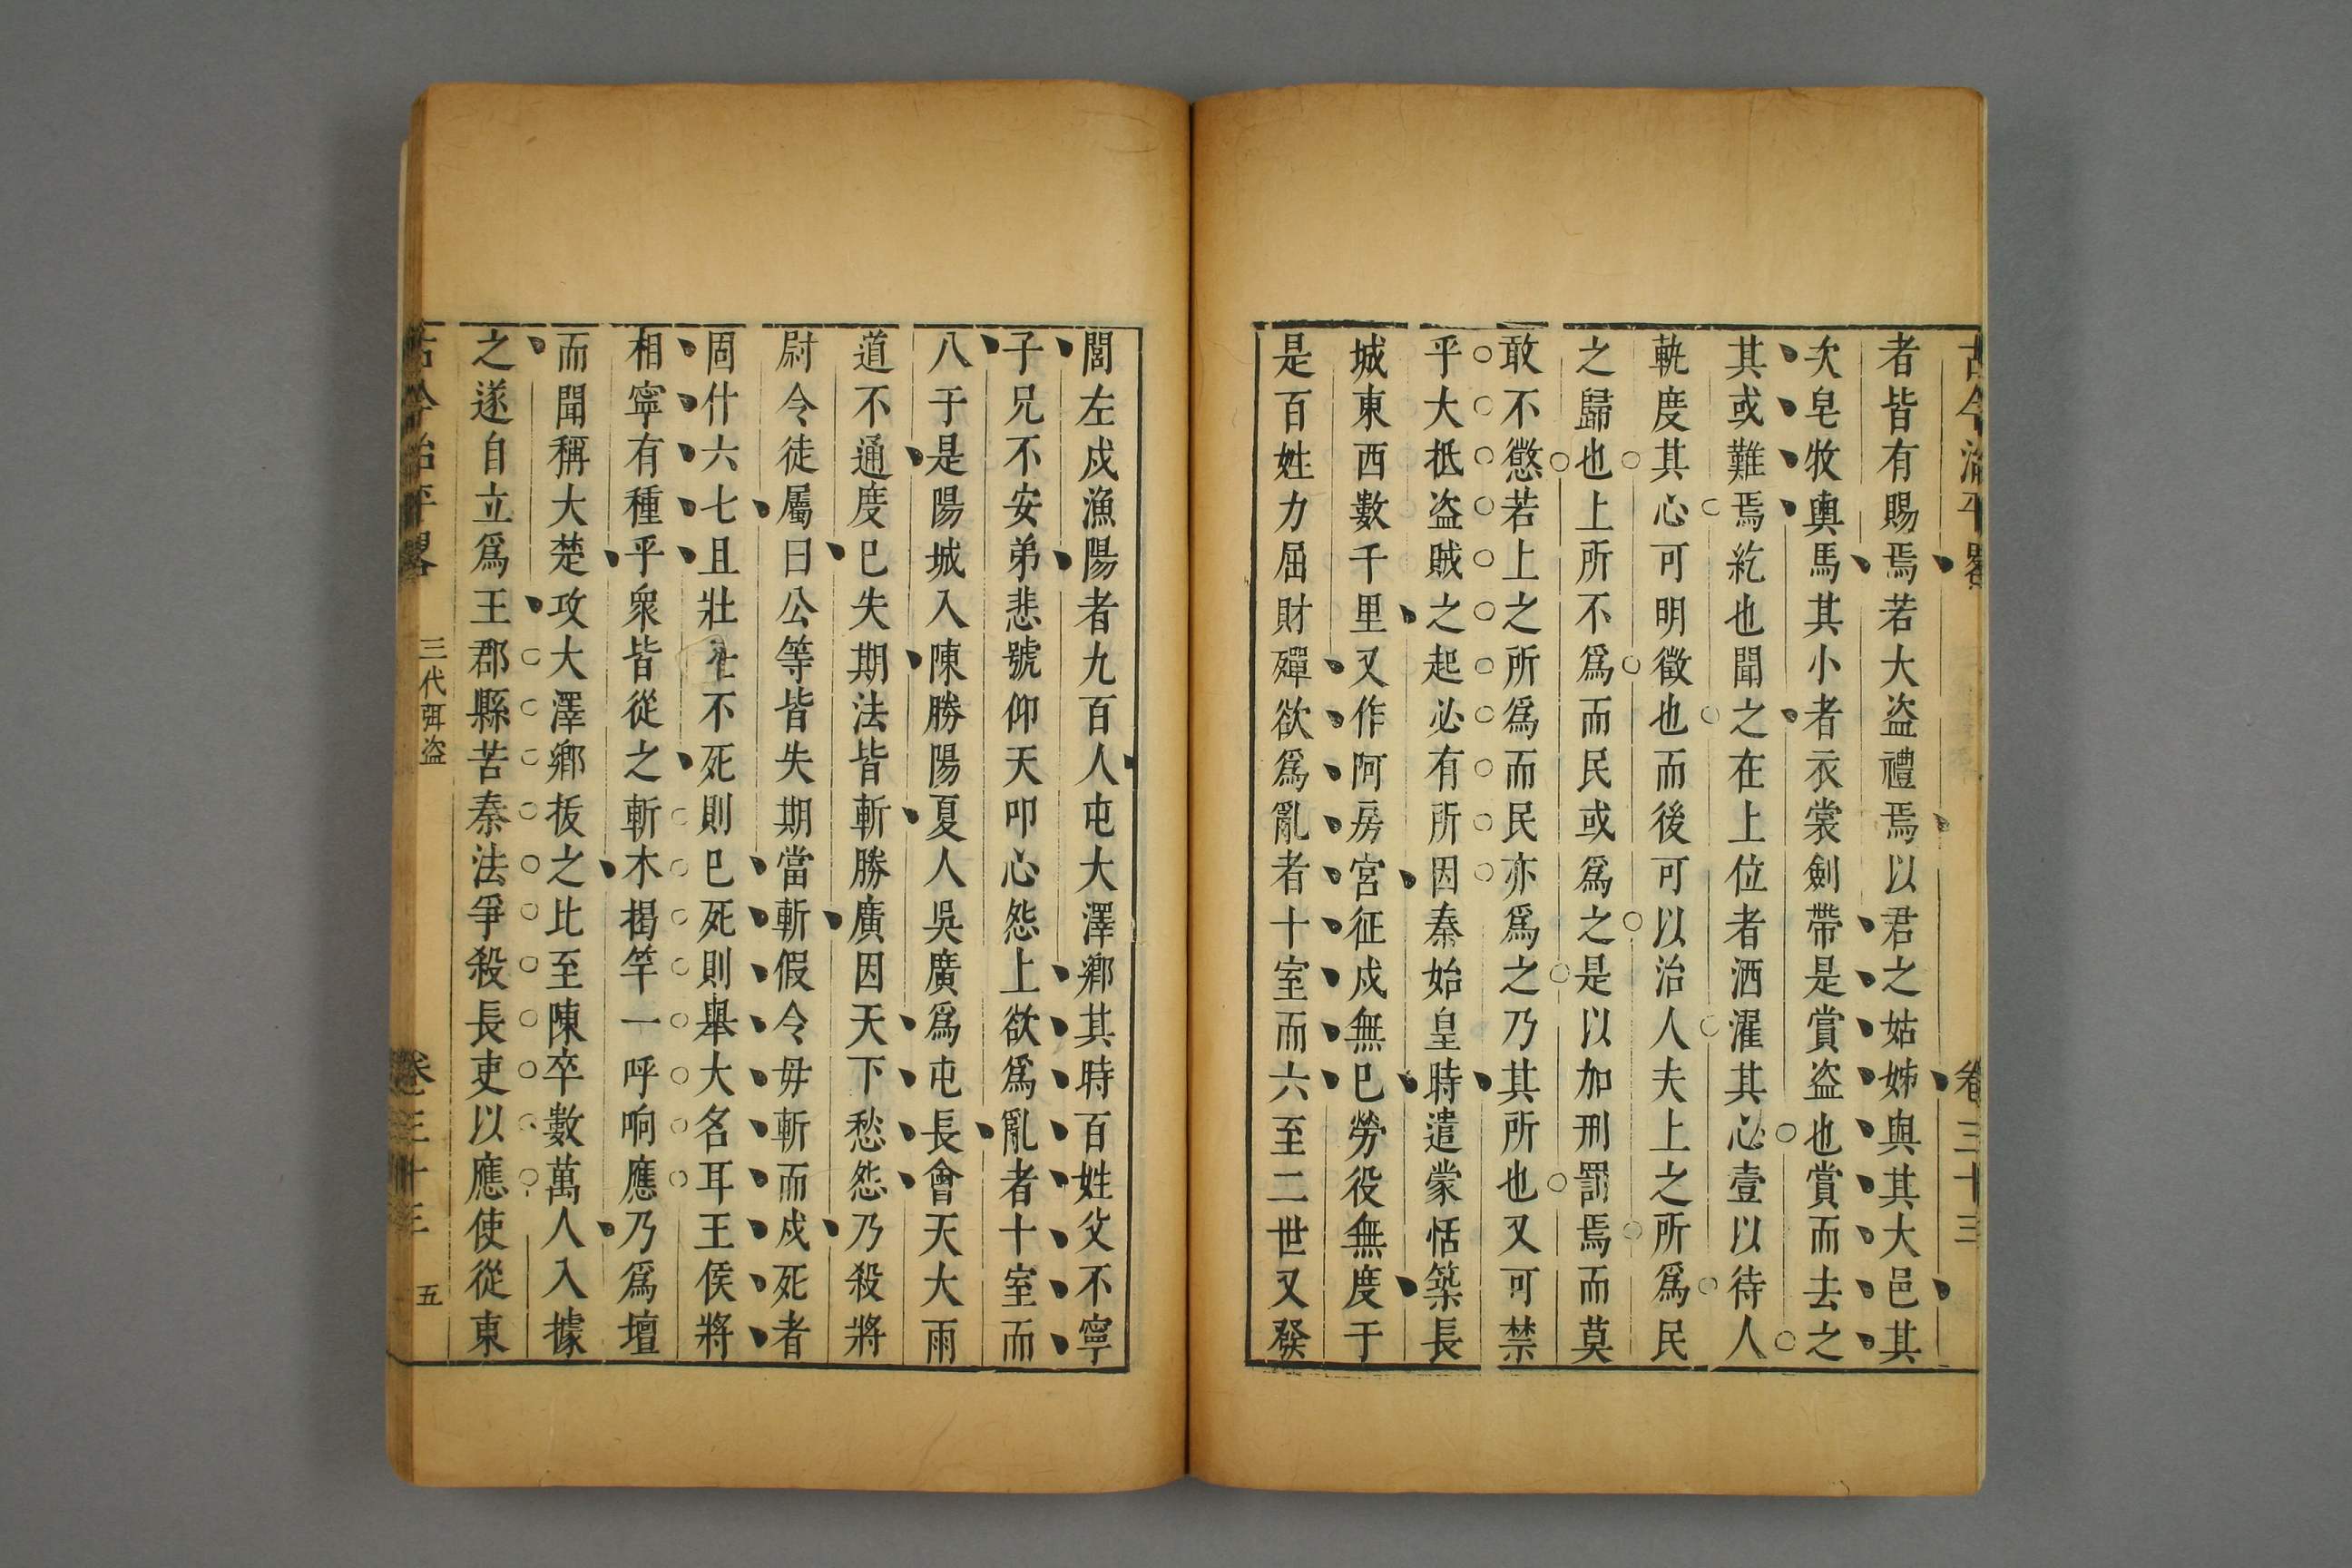 古今治平畧 卷三十三
者皆有賜焉若大盗禮焉以君之姑姊與其大邑其
次皂牧輿馬其小者衣裳劍帶是賞盗也賞而去之
其或難焉紇也聞之在上位者洒濯其心壹以待人
軌度其心可明徵也而後可以治人夫上之所爲民
之歸也上所不爲而民或爲之是以加刑罰焉而莫
敢不懲若上之所爲而民亦爲之乃其所也又可禁
乎大抵盗賊之起必有所因秦始皇時遣蒙恬築長
城東西數千里又作阿房宮征戍無巳勞役無度于
是百姓力屈財殫欲爲亂者十室而六至二世又發
閭左戍漁陽者九百人屯大澤鄉其時百姓父不寧
子兄不安弟悲號仰天叩心怨上欲爲亂者十室而
八于是陽城入陳勝陽夏人吳廣爲屯長會天大雨
道不通度巳失期法皆斬勝廣因天下愁怨乃殺將
尉令徒屬曰公等皆失期當斬假令毋斬而戍死者
固什六七且壯士不死則巳死則舉大名耳王侯將
相寧有種乎衆皆從之斬木揭竿一呼响應乃爲壇
而聞稱大楚攻大澤鄉抜之比至陳卒數萬人入據
之遂自立爲王郡縣苦秦法爭殺長吏以應使從東
古今治平畧 三代弭盗 卷三十三 五